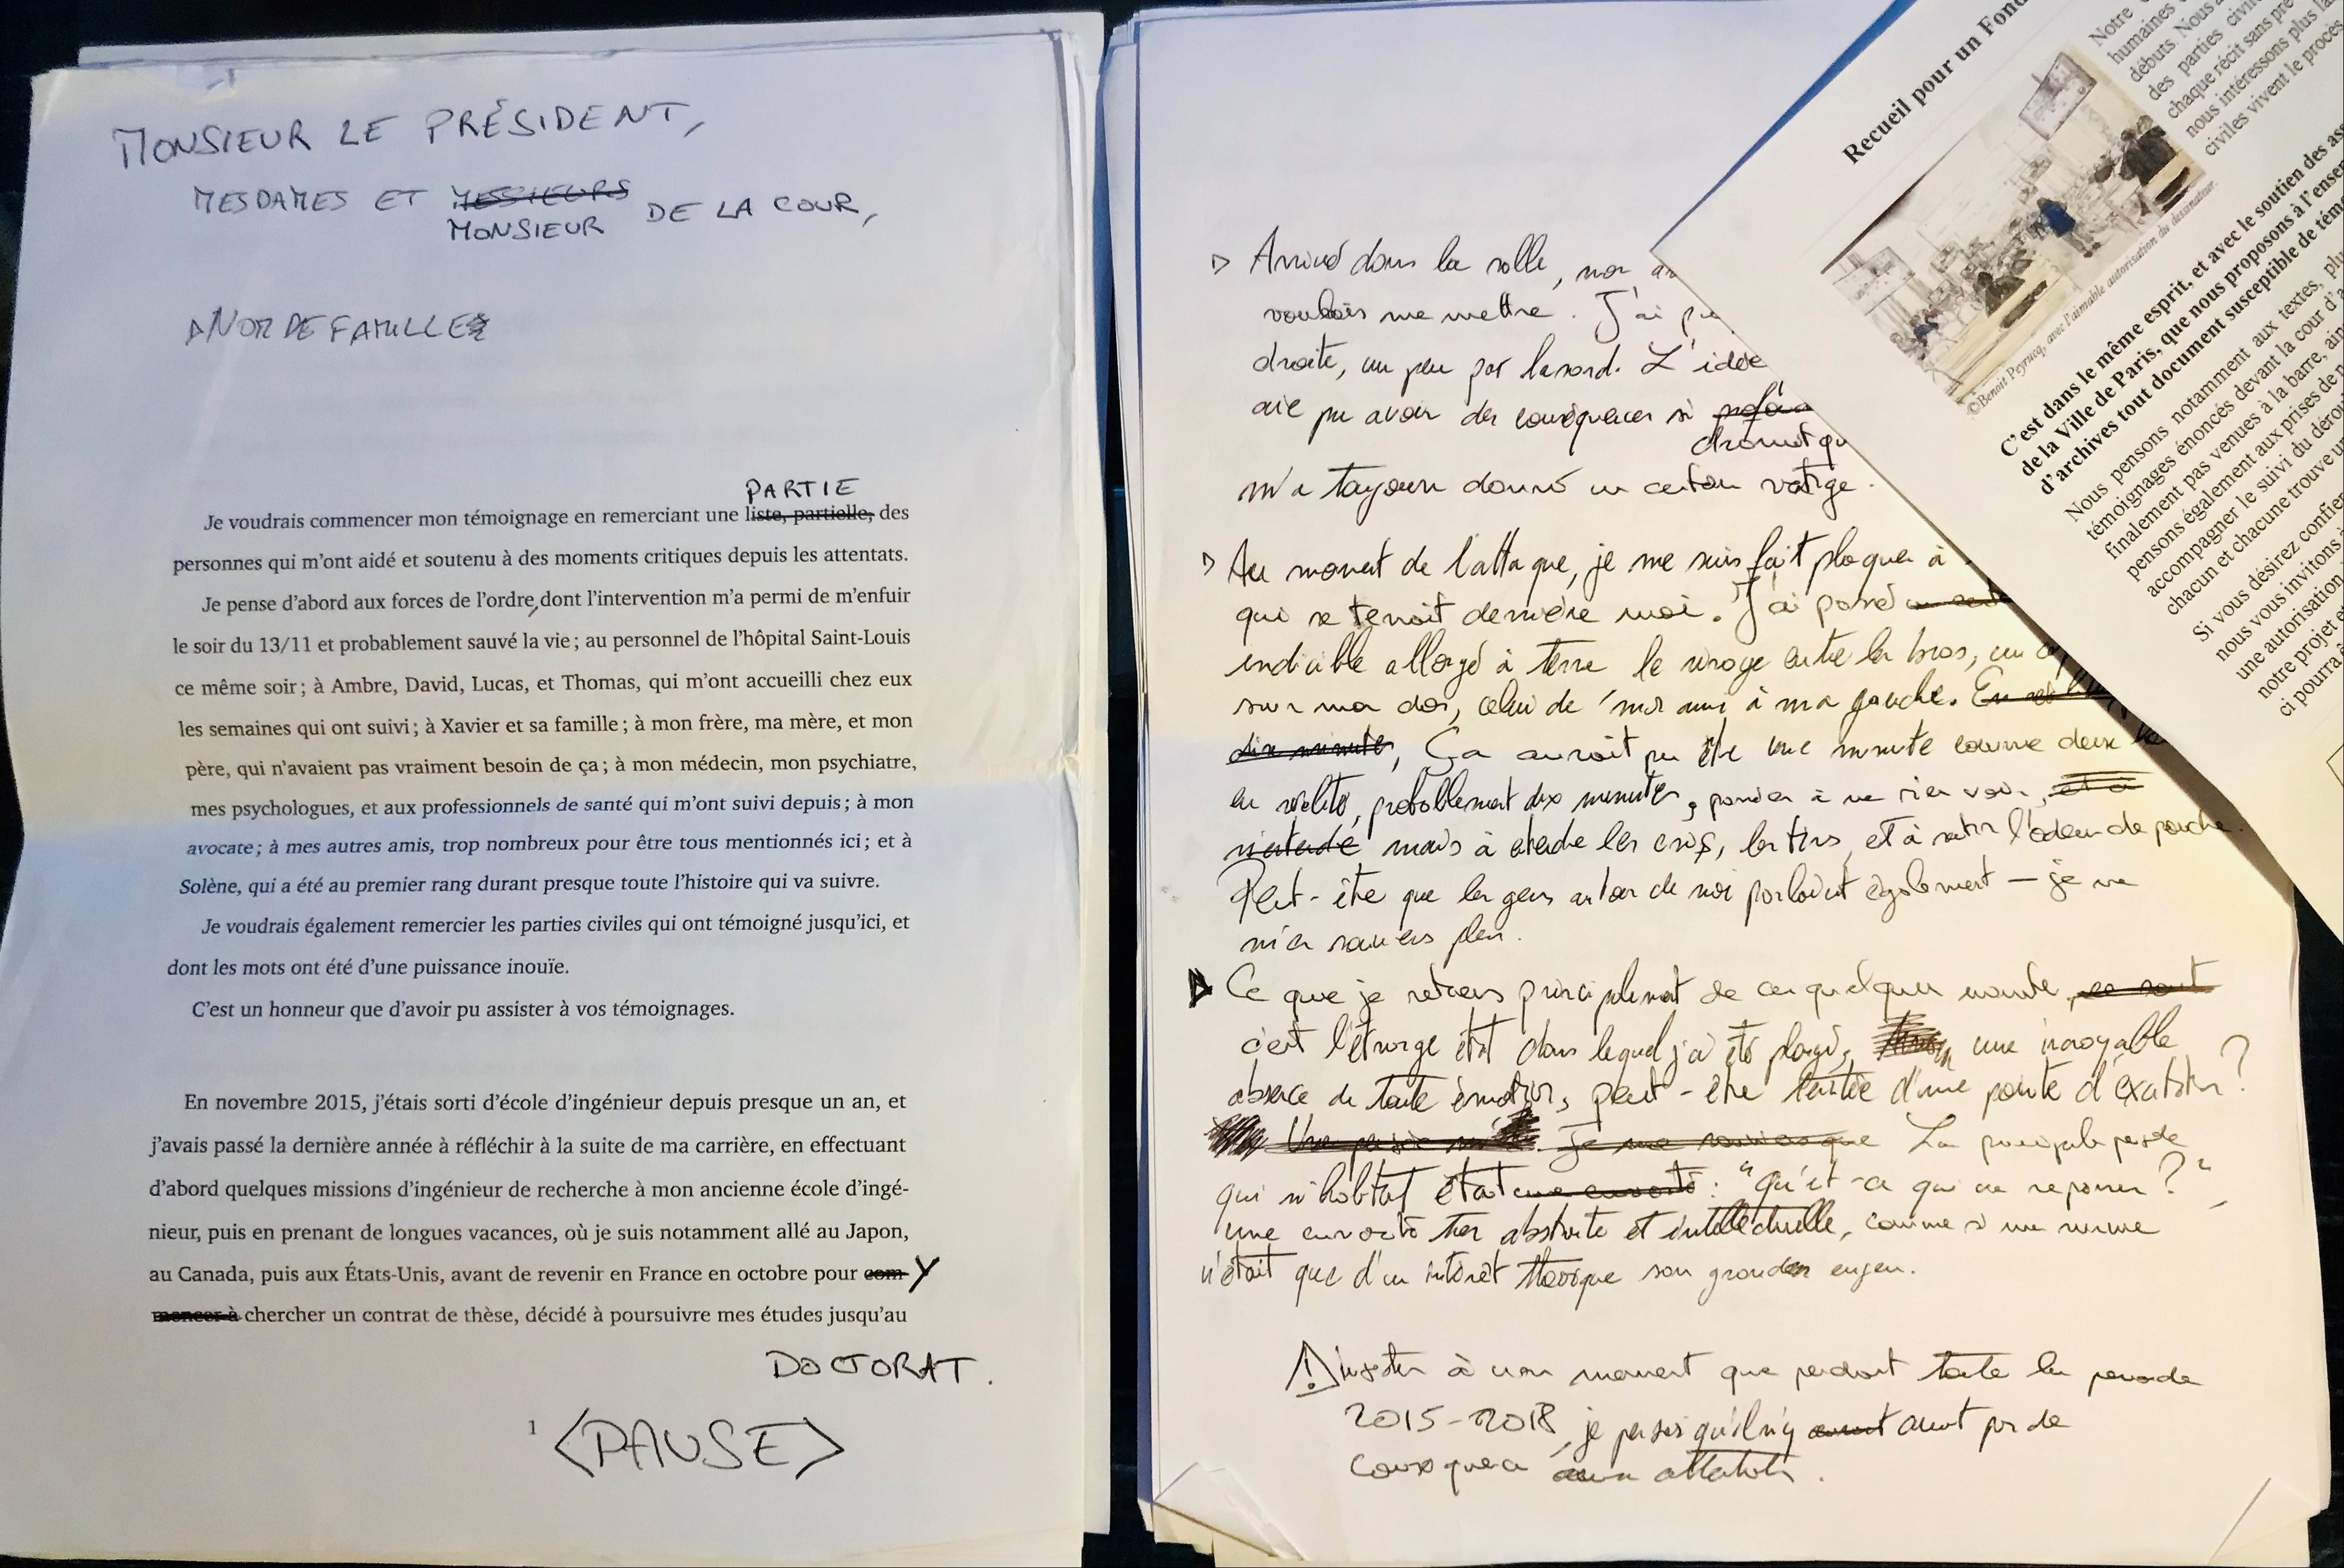 MONSIEUR LE PRÉSIDENT,
MESDAMES ET MESSIEURS DE LA COUR,
MONSIEUR
NOM DE FAMILLE
PARTIE
Je voudrais commencer mon témoignage en remerciant une liste, partielle, des
personnes qui m'ont aidé et soutenu à des moments critiques depuis les attentats.
Je pense d'abord aux forces de l'ordre, dont l'intervention m'a permi de m'enfuir
le soir du 13/11 et probablement sauvé la vie ; au personnel de l'hôpital Saint-Louis
ce même soir ; à Ambre, David, Lucas, et Thomas, qui m'ont accueilli chez eux
les semaines qui ont suivi ; à Xavier et sa famille ; à mon frère, ma mère, et mon
père, qui n'avaient pas vraiment besoin de ça ; à mon médecin, mon psychiatre,
mes psychologues, et aux professionnels de santé qui m'ont suivi depuis ; à mon
avocate ; à mes autres amis, trop nombreux pour être tous mentionnés ici ; et à
Solène, qui a été au premier rang durant presque toute l'histoire qui va suivre.
Je voudrais également remercier les parties civiles qui ont témoigné jusqu'ici, et
dont les mots ont été d'une puissance inouïe.
C'est un honneur que d'avoir pu assister à vos témoignages.
En novembre 2015, j'étais sorti d'école d'ingénieur depuis presque un an, et
j'avais passé la dernière année à réfléchir à la suite de ma carrière, en effectuant
d'abord quelques missions d'ingénieur de recherche à mon ancienne école d'ingé-
nieur, puis en prenant de longues vacances, où je suis notamment allé au Japon,
au Canada, puis aux États-Unis, avant de revenir en France en octobre pour com-
mencer à chercher un contrat de thèse, décidé à poursuivre mes études jusqu'au
DOCTORAT.
1
<PAUSE>
Arrivé dans la salle, mon
voulais me mettre. J'ai
droite, un peu par hasard. L'idée
aie pu avoir des conséquences si
m'a toujours donné un certain vertige.
Au moment de l'attaque, je me suis fait plaquer à
qui se tenait derrière moi. J'ai passé
indicible allongé à terre le visage entre les bras, un
sur mon dos, celui de mon ami à ma gauche.
dix minutes, Ça aurait pu être une minute comme deux
en réalité, probablement dix minutes, à ne rien voir, et à
n'entendre mais à entendre les cris, les tirs, et à sentir l'odeur de poudre.
Peut-être que les gens autour de moi parlaient également — je ne
m'en souviens plus.
Ce que je retiens principalement de ces quelques minutes, ce sont
c'est l'étrange état dans lequel j'ai été plongé, une incroyable
absence de toute émotion, peut-être teintée d'une pointe d'excitation ?
Je me souviens que La principale pensée
qui m'habitait était une curiosité : "Qu'est-ce qui va se passer ?",
une curiosité très abstraite et intellectuelle, comme si ma survie
n'était que d'un intérêt théorique sans grand enjeu.
insister à un moment que pendant toute la période
2015-2018, je pensais qu'il n'y avait avait pas de
conséquence aux attentats.
Recueil pour un
Notre
humaines
débuts. Nous
des parties civiles
chaque récit sans
nous intéressons plus
civiles vivent le procès
©Benoit Peyrucq, avec l'aimable autorisation du dessinateur.
C'est dans le même esprit, et avec le soutien des
de la Ville de Paris, que nous proposons à
d'archives tout document susceptible de
Nous pensons notamment aux textes,
témoignages énoncés devant la cour
finalement pas venues à la barre,
pensons également aux prises de
accompagner le suivi du
chacun et chacune trouve
Si vous désirez confier
nous vous invitons
une autorisation
notre projet et
ci pourra